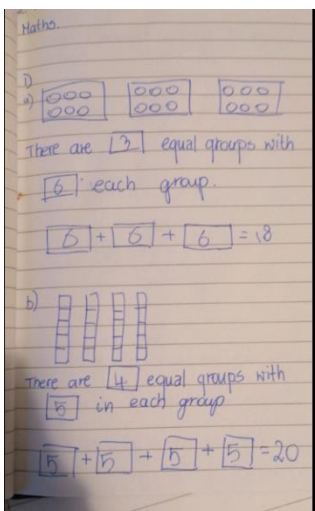 Maths.
1)
a)
There are 3 equal groups with
6 each group.
6 + 6 + 6 = 18
b)
There are 4 equal groups with
5 in each group
5 + 5 + 5 + 5 = 20